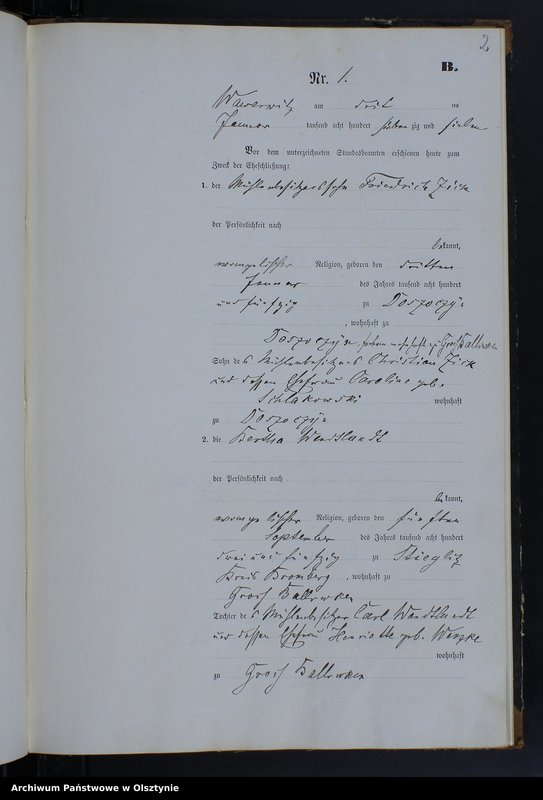 2
B.
Nr. 1.
am ten
Januar tausend acht hundert sieben zig und sieben
Vor dem unterzeichneten Standesbeamten erschienen heute zum
Zweck der Eheschließung:
1. der Mühlenbesitzersohn Friedrich
der Persönlichkeit nach
bekannt,
evangelischer Religion, geboren den dritten
Januar des Jahres tausend acht hundert
und fünfzig zu
, wohnhaft zu
Groß Ballowken
Sohn des Mühlenbesitzers Christian
und dessen Ehefrau Caroline geb.
wohnhaft
zu
2. die Bertha Wendtlandt
der Persönlichkeit nach
bekannt,
evangelischer Religion, geboren den fünften
September des Jahres tausend acht hundert
drei und fünfzig zu Stieglitz
Kreis Bromberg, wohnhaft zu
Groß Ballowken
Tochter des Mühlenbesitzer Carl Wendtlandt
und dessen Ehefrau Henriette geb.
wohnhaft
zu Groß Ballowken
Archiwum Państwowe w Olsztynie